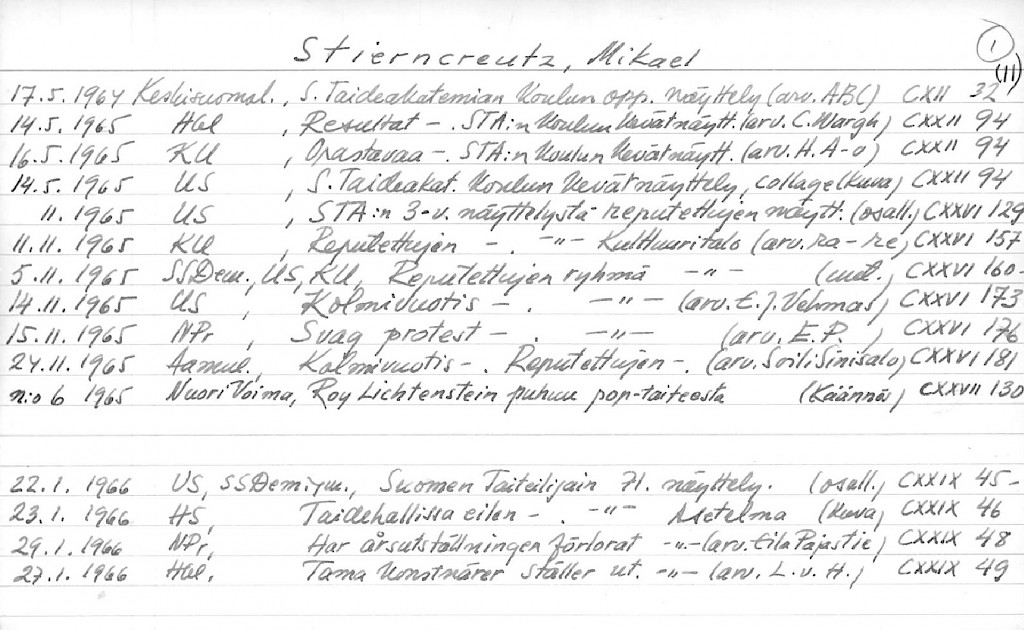 Stierncreutz, Mikael
1
(11)
17.5.1964 Keskisuomal., S. Taideakatemian Koulun opp. näyttely (arv. ABC) CXII 32
14.5.1965 Hbl, Resultat –. STA:n Koulun Kevätnäytt. (arv. C. Wargh) CXXII 94
16.5.1965 KU, Opastavaa –. STA:n Koulun Kevätnäytt. (arv. H. A-o) CXXII 94
14.5.1965 US, S. Taideakat. Koulun Kevätnäyttely, collage (kuva) CXXII 94
11.1965 US, STA:n 3-v. näyttelystä reputettujen näytt. (osall.) CXXVI 129
11.11.1965 KU, Reputettujen –. –"– Kulttuuritalo (arv. ra-re) CXXVI 157
5.11.1965 SSDem., US, KU, Reputettujen ryhmä –"– (uut.) CXXVI 160-
14.11.1965 US, Kolmivuotis –. –"– (arv. E.J. Vehmas) CXXVI 173
15.11.1965 NPr, Svag protest –. –"– (arv. E.P.) CXXVI 176
24.11.1965 Aamul., Kolmivuotis –. Reputettujen –. (arv. Soili Sinisalo) CXXVI 181
n:o 6 1965 Nuori Voima, Roy Lichtenstein puhuu pop-taiteesta (Käännös) CXXVII 130
22.1.1966 US, SSDem ym., Suomen Taiteilijain 71. näyttely. (osall.) CXXIX 45-
23.1.1966 HS, Taidehallissa eilen –. –"– Asetelma (kuva) CXXIX 46
29.1.1966 NPr, Har årsutställningen förlorat –"– (arv. Eila Pajastie) CXXIX 48
27.1.1966 Hbl, Tama Konstnärer ställer ut. –"– (arv. L.v.H.) CXXIX 49